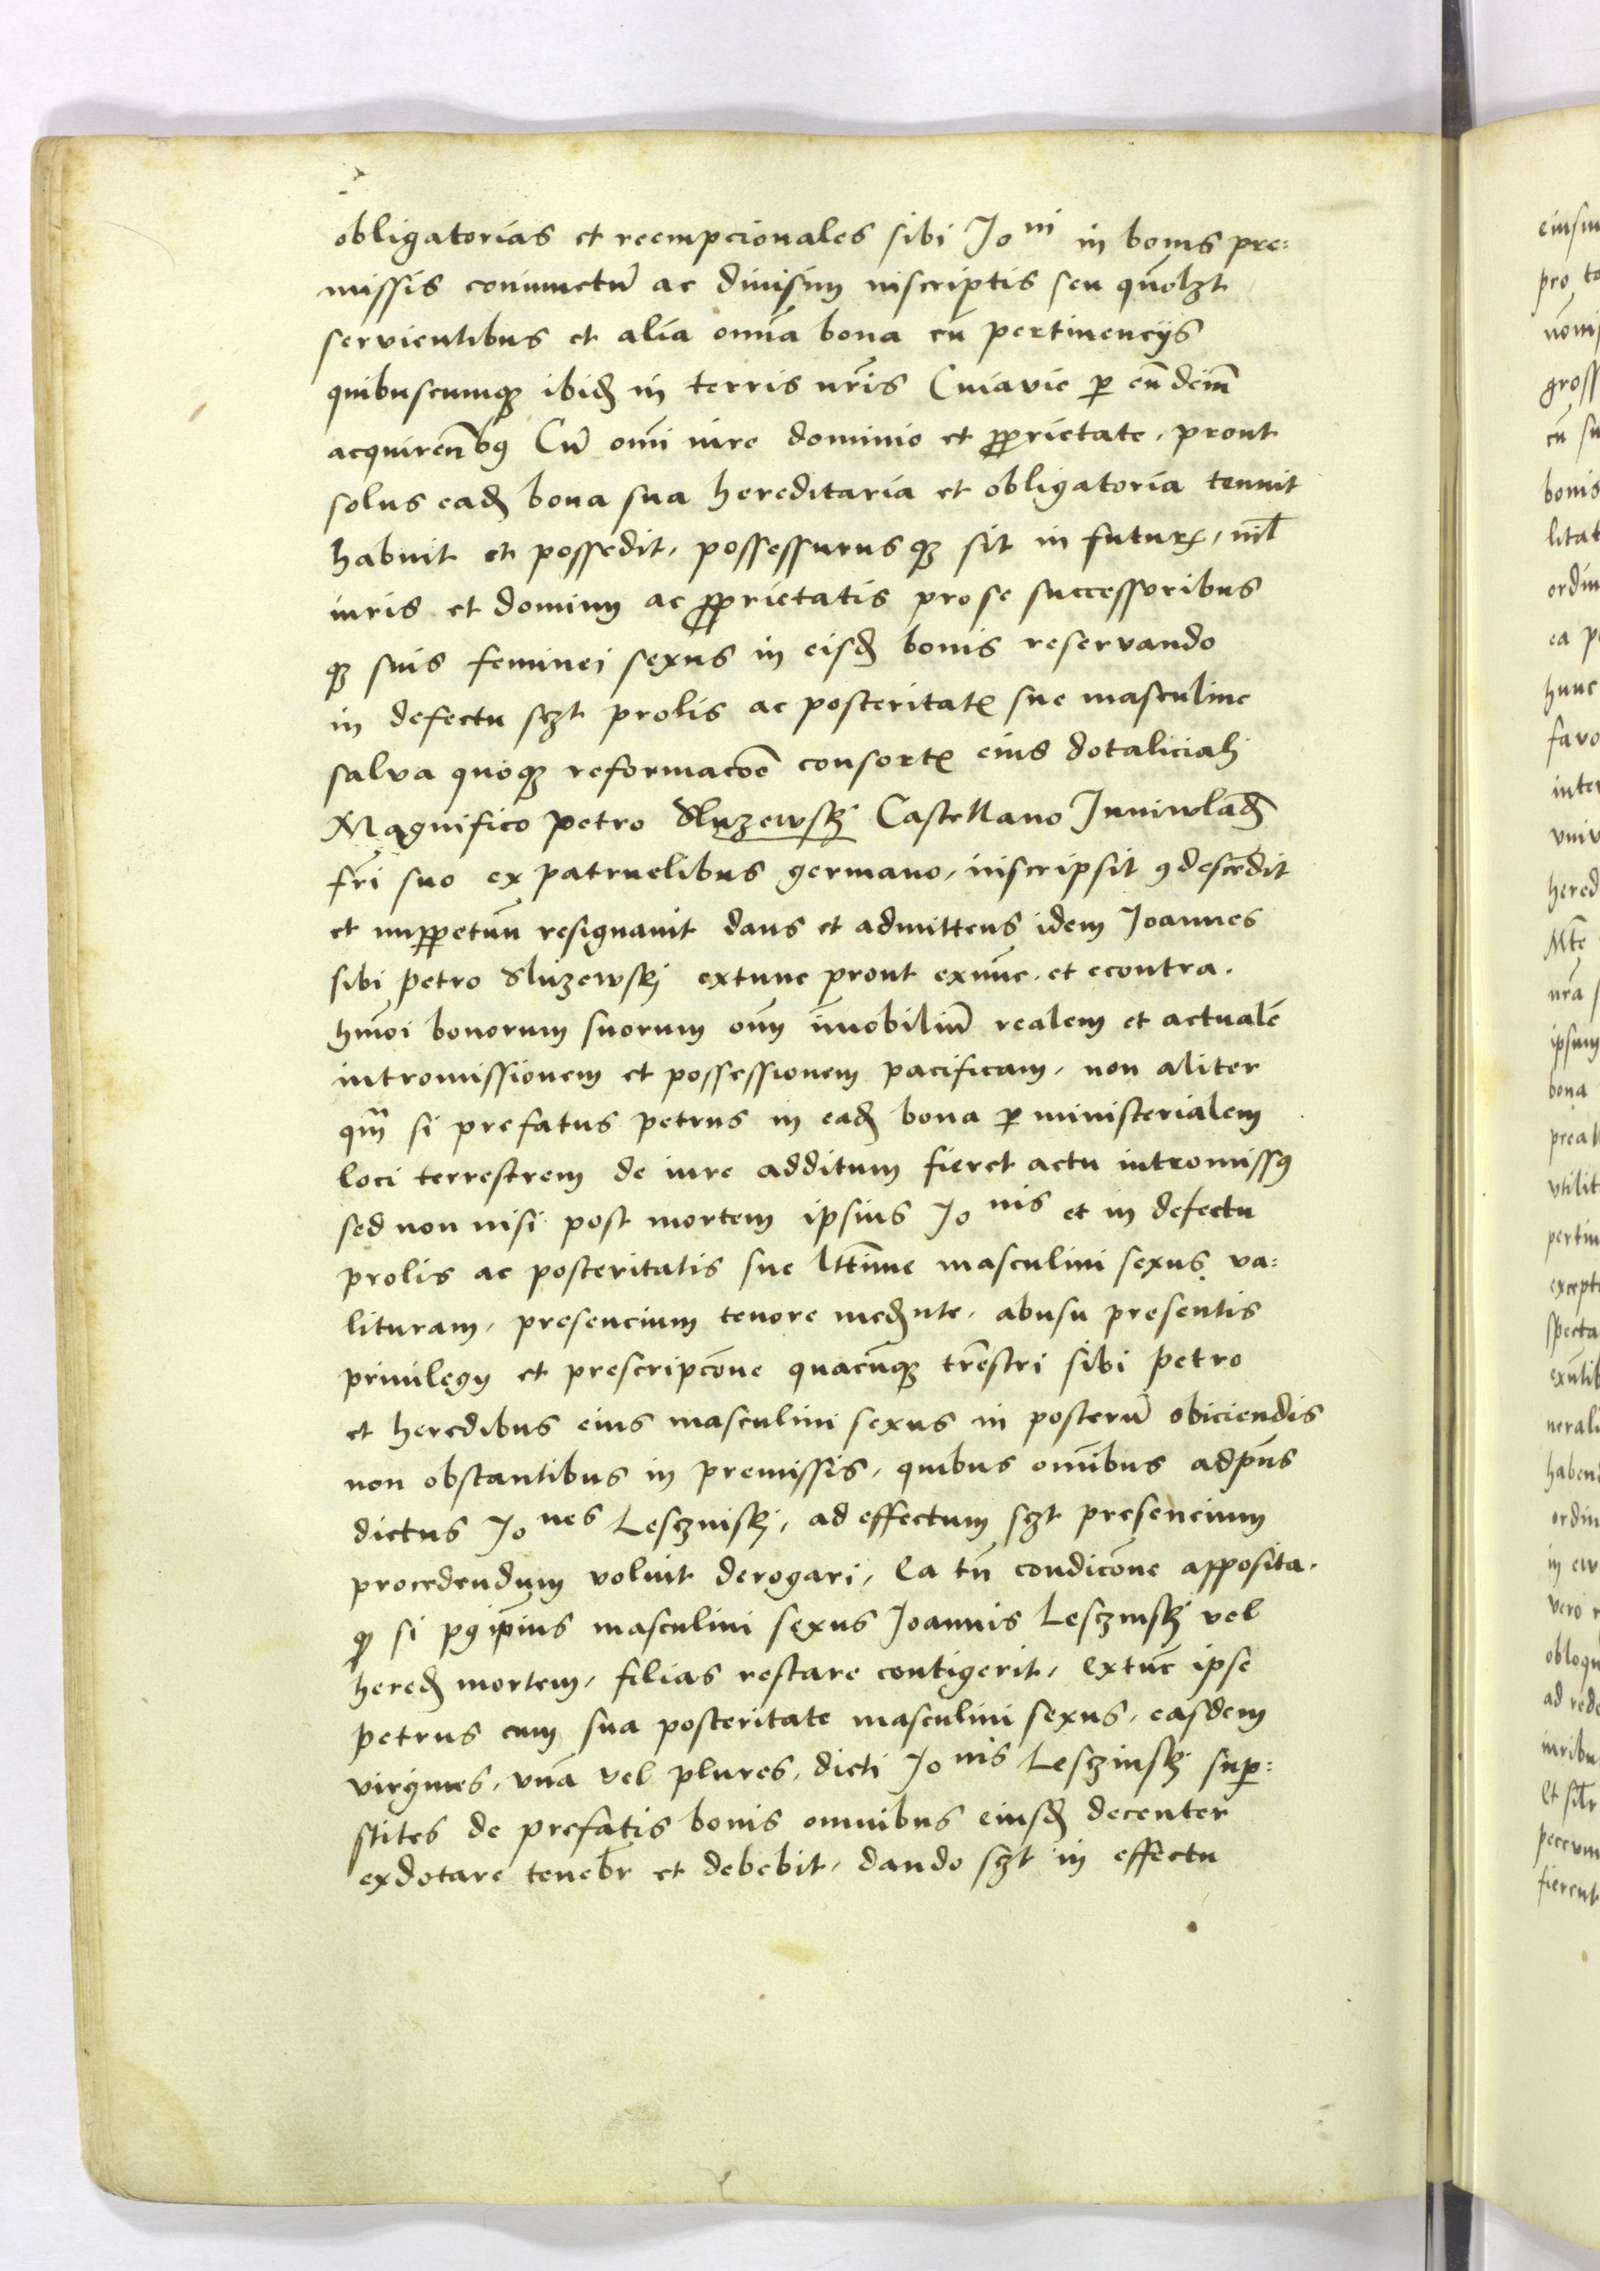 obligatorias et reempcionales sibi Jo ni in bonis pre:
missis coniunctu͂ ac diuisim inscriptis seu qu͂olzt
servientibus et alia om͂ia bona cu͂ pertinencijs
quibuscumqꝫ ibidꝫ in terris nr͂is Cuiavie ꝑ eu͂dem͂
acquiren͂bꝰ Cu͂ om͂i iure dominio et ꝓprietate, prout
solus eadꝫ bona sua hereditaria et obligatoria tenuit
habuit et possedit, possessurusqꝫ sit in futurꝝ, nil͂
iuris et dominij ac ꝓprietatis pro se successoribus
qꝫ suis feminei sexus in eisdꝫ bonis reservando
in defectu sꝫt prolis ac posteritatꝭ sue masculine
salva quoqꝫ reformaco͂e consortꝭ eius dotaliciali
Magnifico Petro Sluzewskj Castellano Juniwladꝫ
fr͂i suo ex patruelibus germano, inscripsit ꝯdesce͂dit
et inꝑpetuu͂ resignavit dans et admittens idem Joannes
sibi Petro Sluzewskj extunc prout exnu͂c. et econtra.
hm͂oi bonorum suorum om͂ im͂obiliu͂ realem et actuale͂
intromissionem et possessionem pacificam, non aliter
qm͂ si prefatus Petrus in eadꝫ bona ꝑ ministerialem
loci terrestrem de iure additum fieret actu intromissꝰ
sed non nisi post mortem ipsius Jo nis et in defectu
prolis ac posteritatis sue ltt͂ime masculini sexus va:
lituram, presencium tenore medꝫnte. abusu presentis
priuilegij et prescripco͂ne quacu͂qꝫ tr͂estri sibi Petro
et heredibus eius masculini sexus in posteru͂ obiciendis
non obstantibus in premissis, quibus om͂ibus adpn͂s
dictus Jo nes Lesczniskj, ad effectum sꝫt presencium
procedendum voluit derogari, Ea tn͂ condico͂ne apposita.
qꝫ si pꝰ ip͂ius masculini sexus Joannis Lesczinskj vel
heredꝫ mortem, filias restare contigerit, Extu͂c ipse
Petrus cum sua posteritate masculini sexus, easdem
virgines, vna͂ vel plures, dicti Jo nis Lesczinskj suꝑ:
stites de prefatis bonis omnibus eiusdꝫ decenter
exdotare teneb͂r et debebit, dando sꝫt in effectu